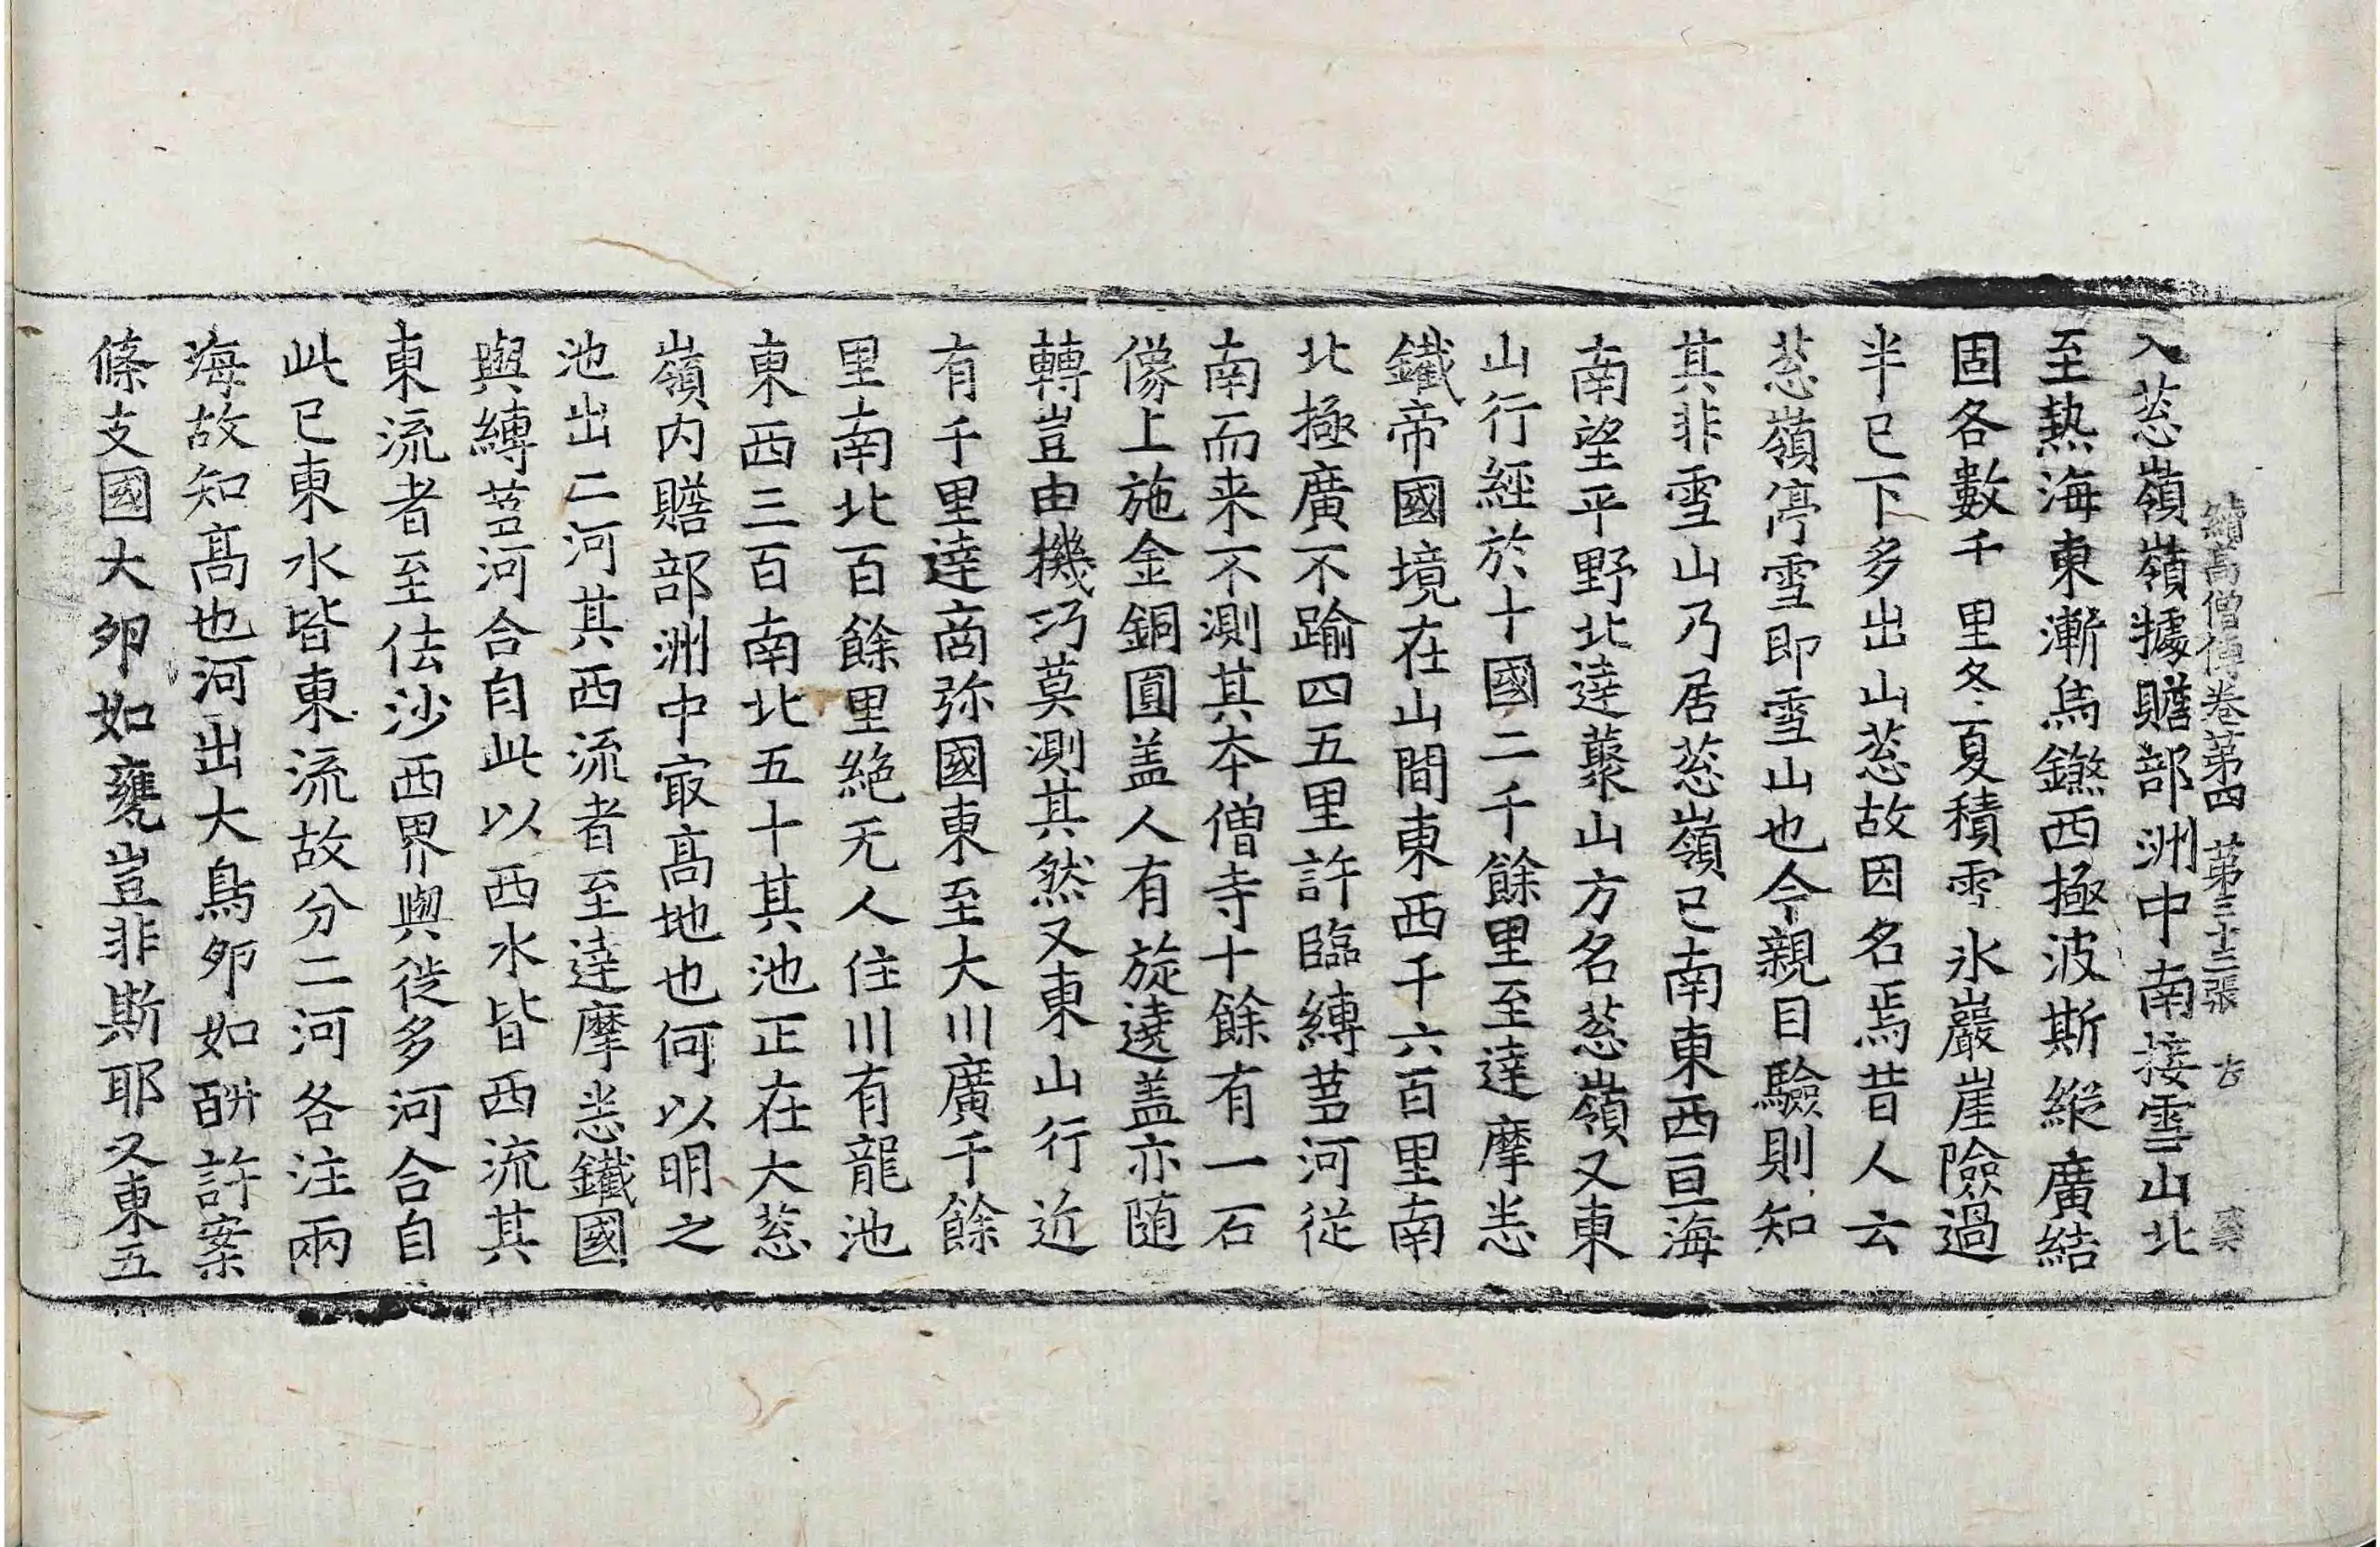 續高僧傳卷苐四 苐三十三張 古
入荵嶺嶺據贍部洲中南接雪山北
至熱海東漸烏鎩西極波斯縱廣結
固各數千里冬夏積雪氷巖崖險過
半已下多出山荵故因名焉昔人云
荵嶺停雪即雪山也今親目驗則知
其非雪山乃居荵嶺已南東西亘海
南望平野北達藂山方名荵嶺又東
山行經於十國二千餘里至達摩悲
鐵帝國境在山間東西千六百里南
北極廣不踰四五里許臨縛芻河從
南而来不測其夲僧寺十餘有一石
像上施金銅圓盖人有旋遶盖亦随
轉豈由機巧莫測其然又東山行近
有千里達商弥國東至大川廣千餘
里南北百餘里絶无人住川有龍池
東西三百南北五十其池正在大荵
嶺内贍部洲中㝡髙地也何以明之
池出二河其西流者至達摩悲鐵國
與縛芻河合自此以西水皆西流其
東流者至佉沙西界與徙多河合自
此已東水皆東流故分二河各注兩
海故知髙也河出大鳥夘如㽃許案
條支國大夘如甕豈非斯耶又東五